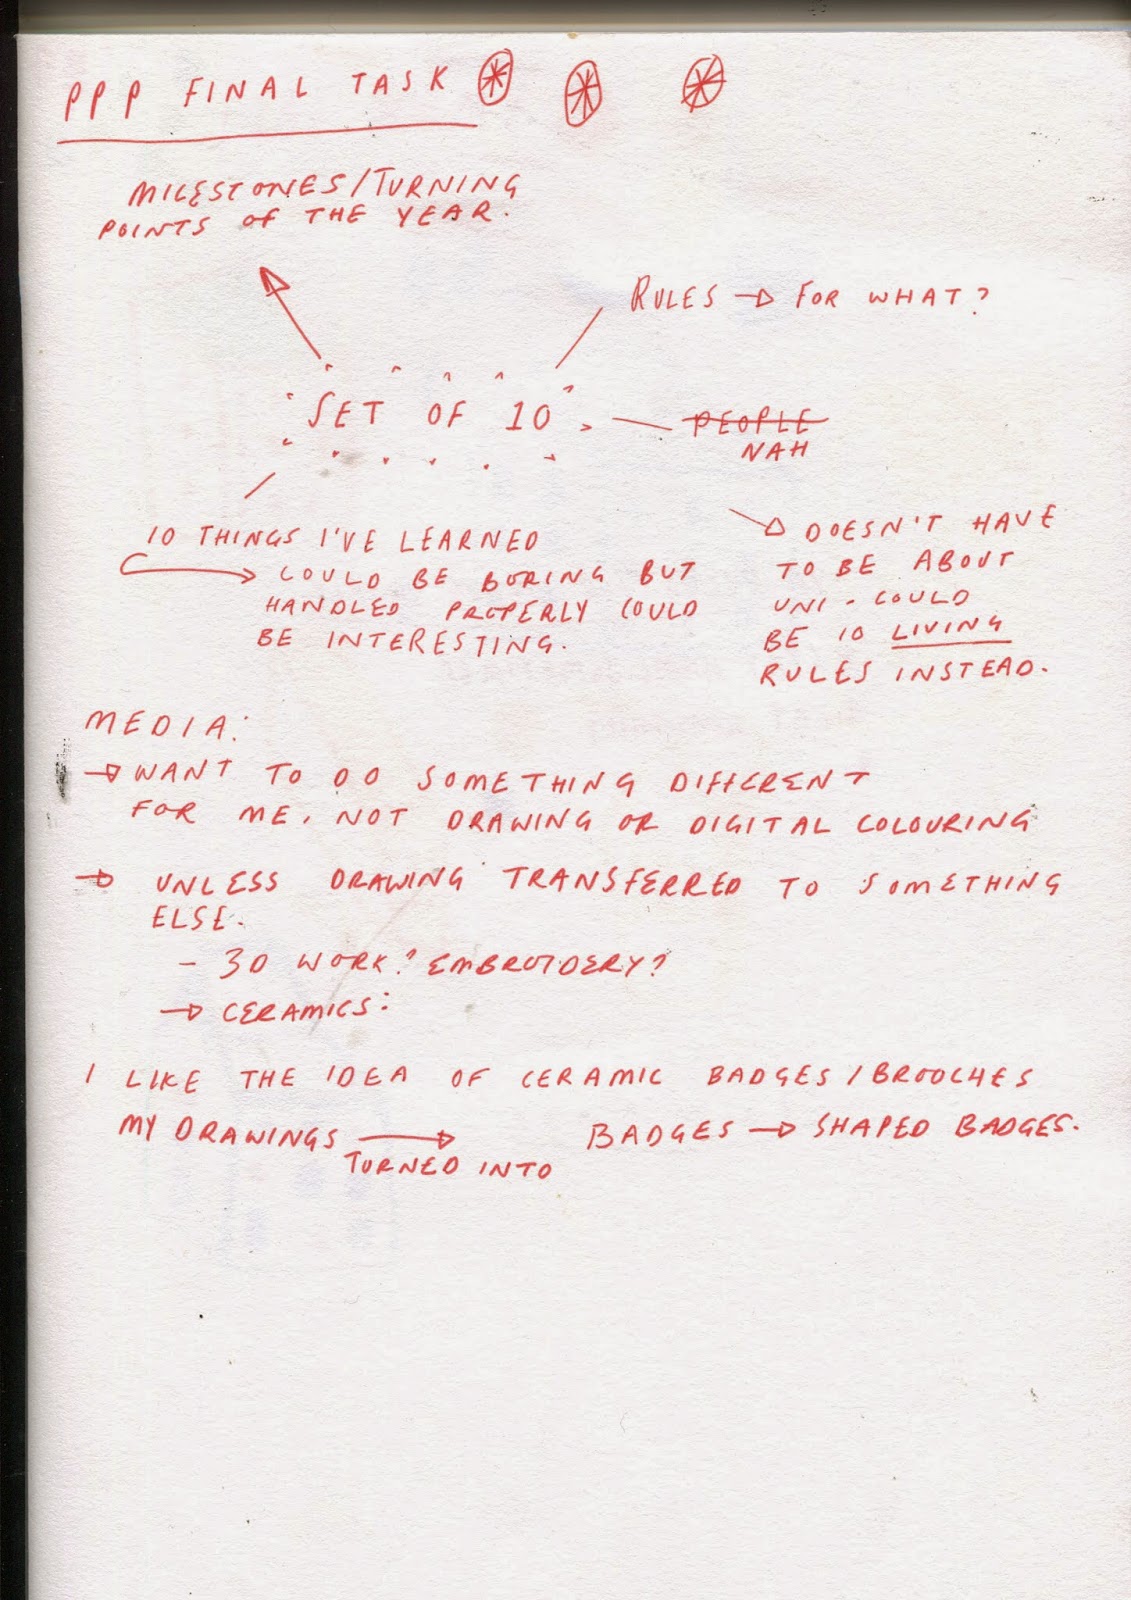 PPP FINAL TASK
MILESTONES/TURNING
POINTS OF THE YEAR.
RULES → FOR WHAT?
SET OF 10
PEOPLE
NAH
10 THINGS I'VE LEARNED
→ COULD BE BORING BUT
HANDLED PROPERLY COULD
BE INTERESTING.
→ DOESN'T HAVE
TO BE ABOUT
UNI - COULD
BE 10 LIVING
RULES INSTEAD.
MEDIA:
→ WANT TO DO SOMETHING DIFFERENT
FOR ME, NOT DRAWING OR DIGITAL COLOURING
→ UNLESS DRAWING TRANSFERRED TO SOMETHING
ELSE.
- 3D WORK? EMBROIDERY?
→ CERAMICS:
I LIKE THE IDEA OF CERAMIC BADGES/BROOCHES
MY DRAWINGS → BADGES → SHAPED BADGES.
TURNED INTO